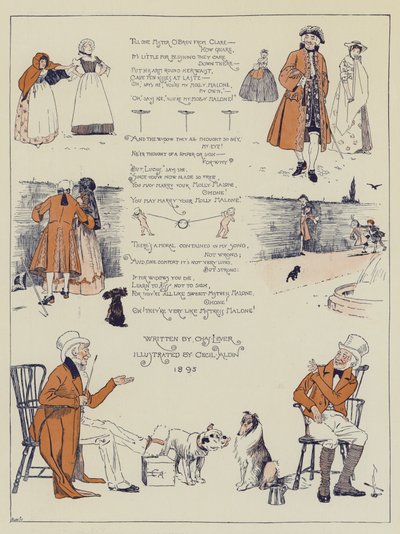 TILL ONE MYSTER O'BRIEN FROM CLARE—
HOW QUARE,
IT'S LITTLE FOR BLUSHING THEY CARE
DOWN THERE—
PUT HIS ARM ROUND HER WAIST,
GAVE TEN KISSES AT LASTE—
"OH," SAYS HE, "YOU'RE MY MOLLY MALONE,
MY OWN,"—
"OH," SAYS HE, "YOU'RE MY MOLLY MALONE!"
AND THE WIDOW THEY ALL THOUGHT SO SHY,
MY EYE!
NE'ER THOUGHT OF A SIMPER OR SIGH—
FOR WHY
"BUT LUCIUS," SAYS SHE,
"SINCE YOU'VE NOW MADE SO FREE,
YOU MAY MARRY YOUR MOLLY MALONE,
OHONE!
YOU MAY MARRY YOUR MOLLY MALONE!"
THERE'S A MORAL CONTAINED IN MY SONG,
NOT WRONG;
AND, ONE COMFORT IT'S NOT VERY LONG,
BUT STRONG:
IF FOR WIDOWS YOU DIE,
LEARN TO KISS NOT TO SIGH,
FOR THEY'RE ALL LIKE SWEET MISTRESS MALONE,
OHONE!
OH! THEY'RE VERY LIKE MISTRESS MALONE!
WRITTEN BY CHAS LEVER
ILLUSTRATED BY CECIL ALDIN
1895
CA